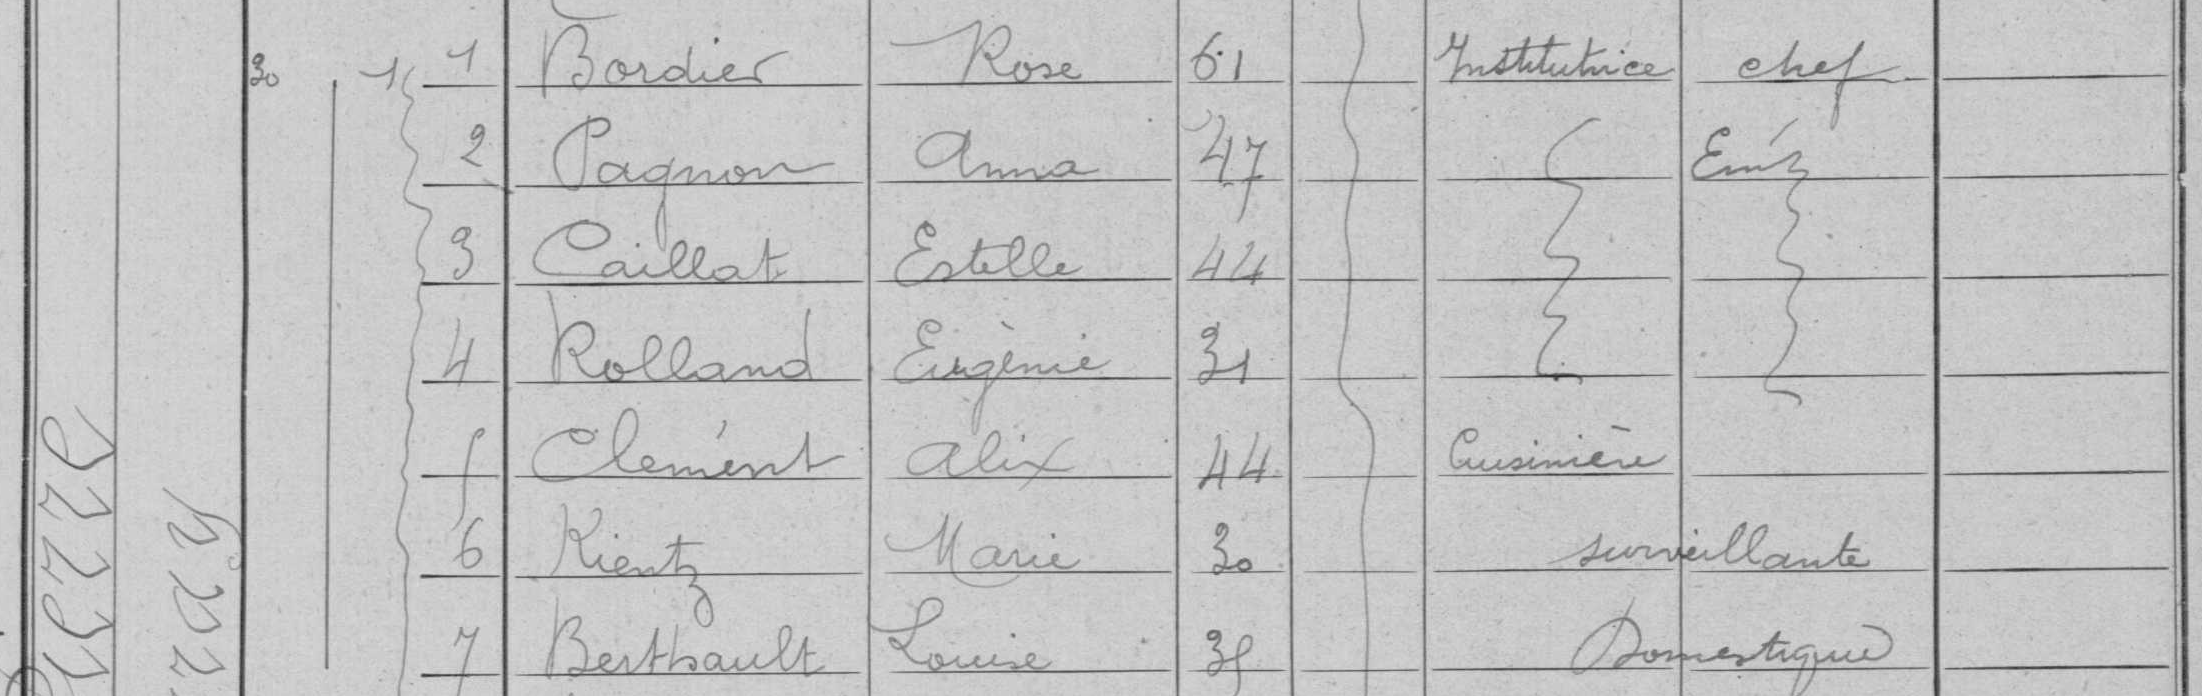 30 1 1 Bordier Rose 61 Institutrice chef
2 Pagnon Anna 47 Em
3 Caillat Estelle 44
4 Rolland Eugènie 31
5 Clemént Alix 44 Cuisinière
6 Kientz Marie 30 surveillante
7 Berthault Louise 35 Domestique